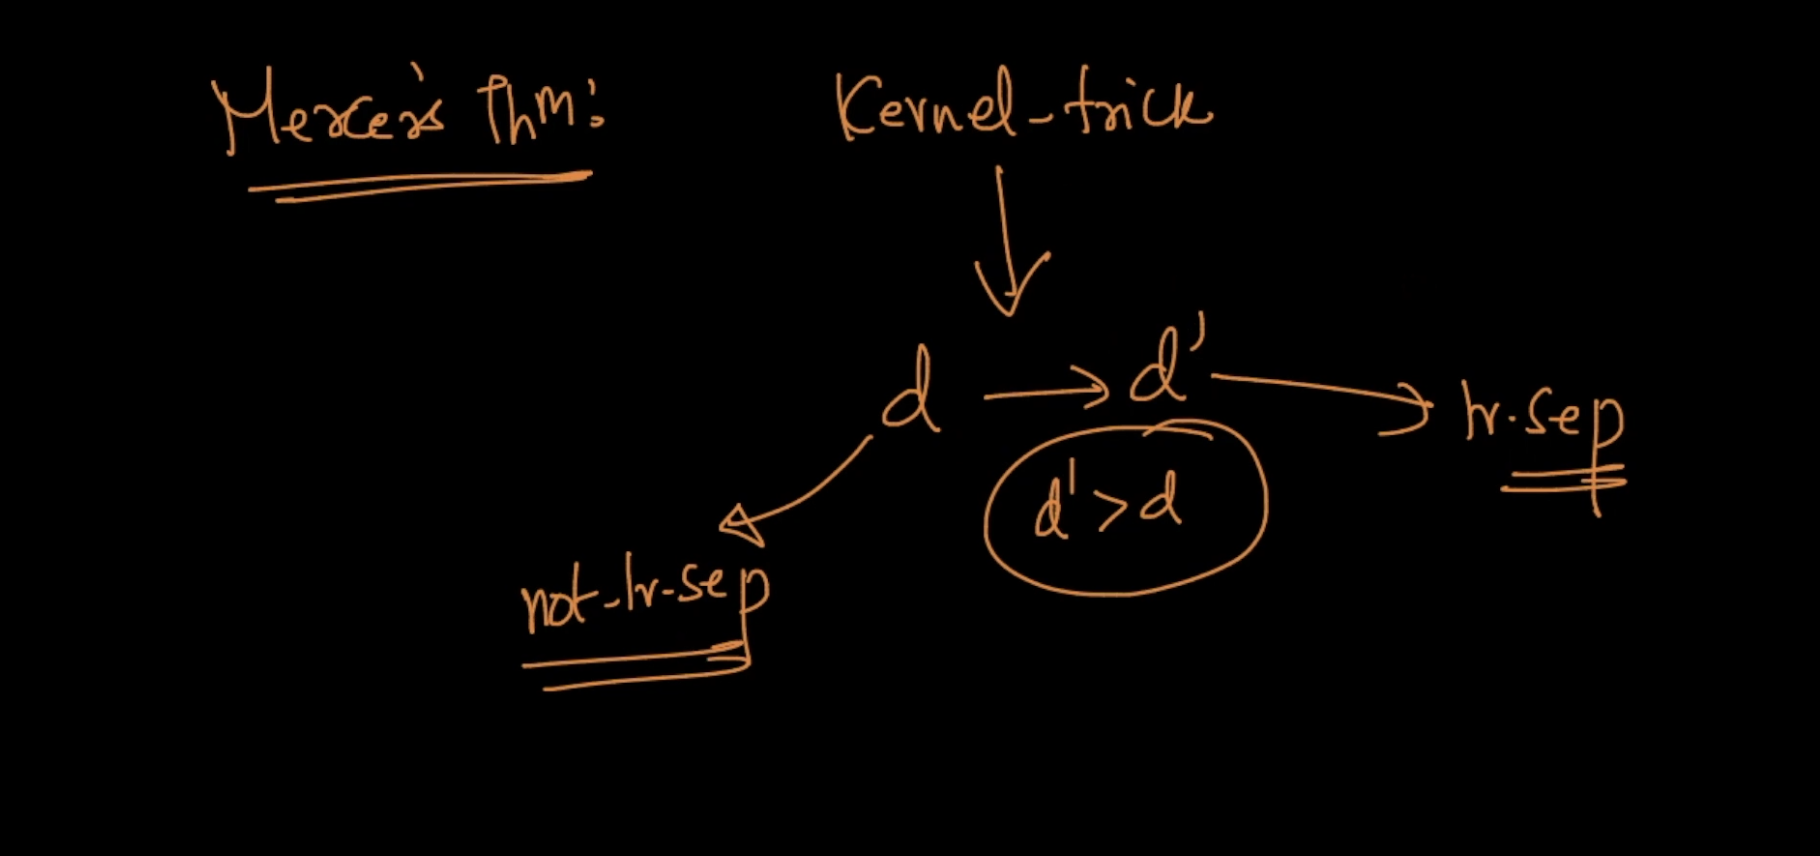 Mercer's Thm:
Kernel-trick
d → d' → lr.sep
d' > d
not-lr-sep